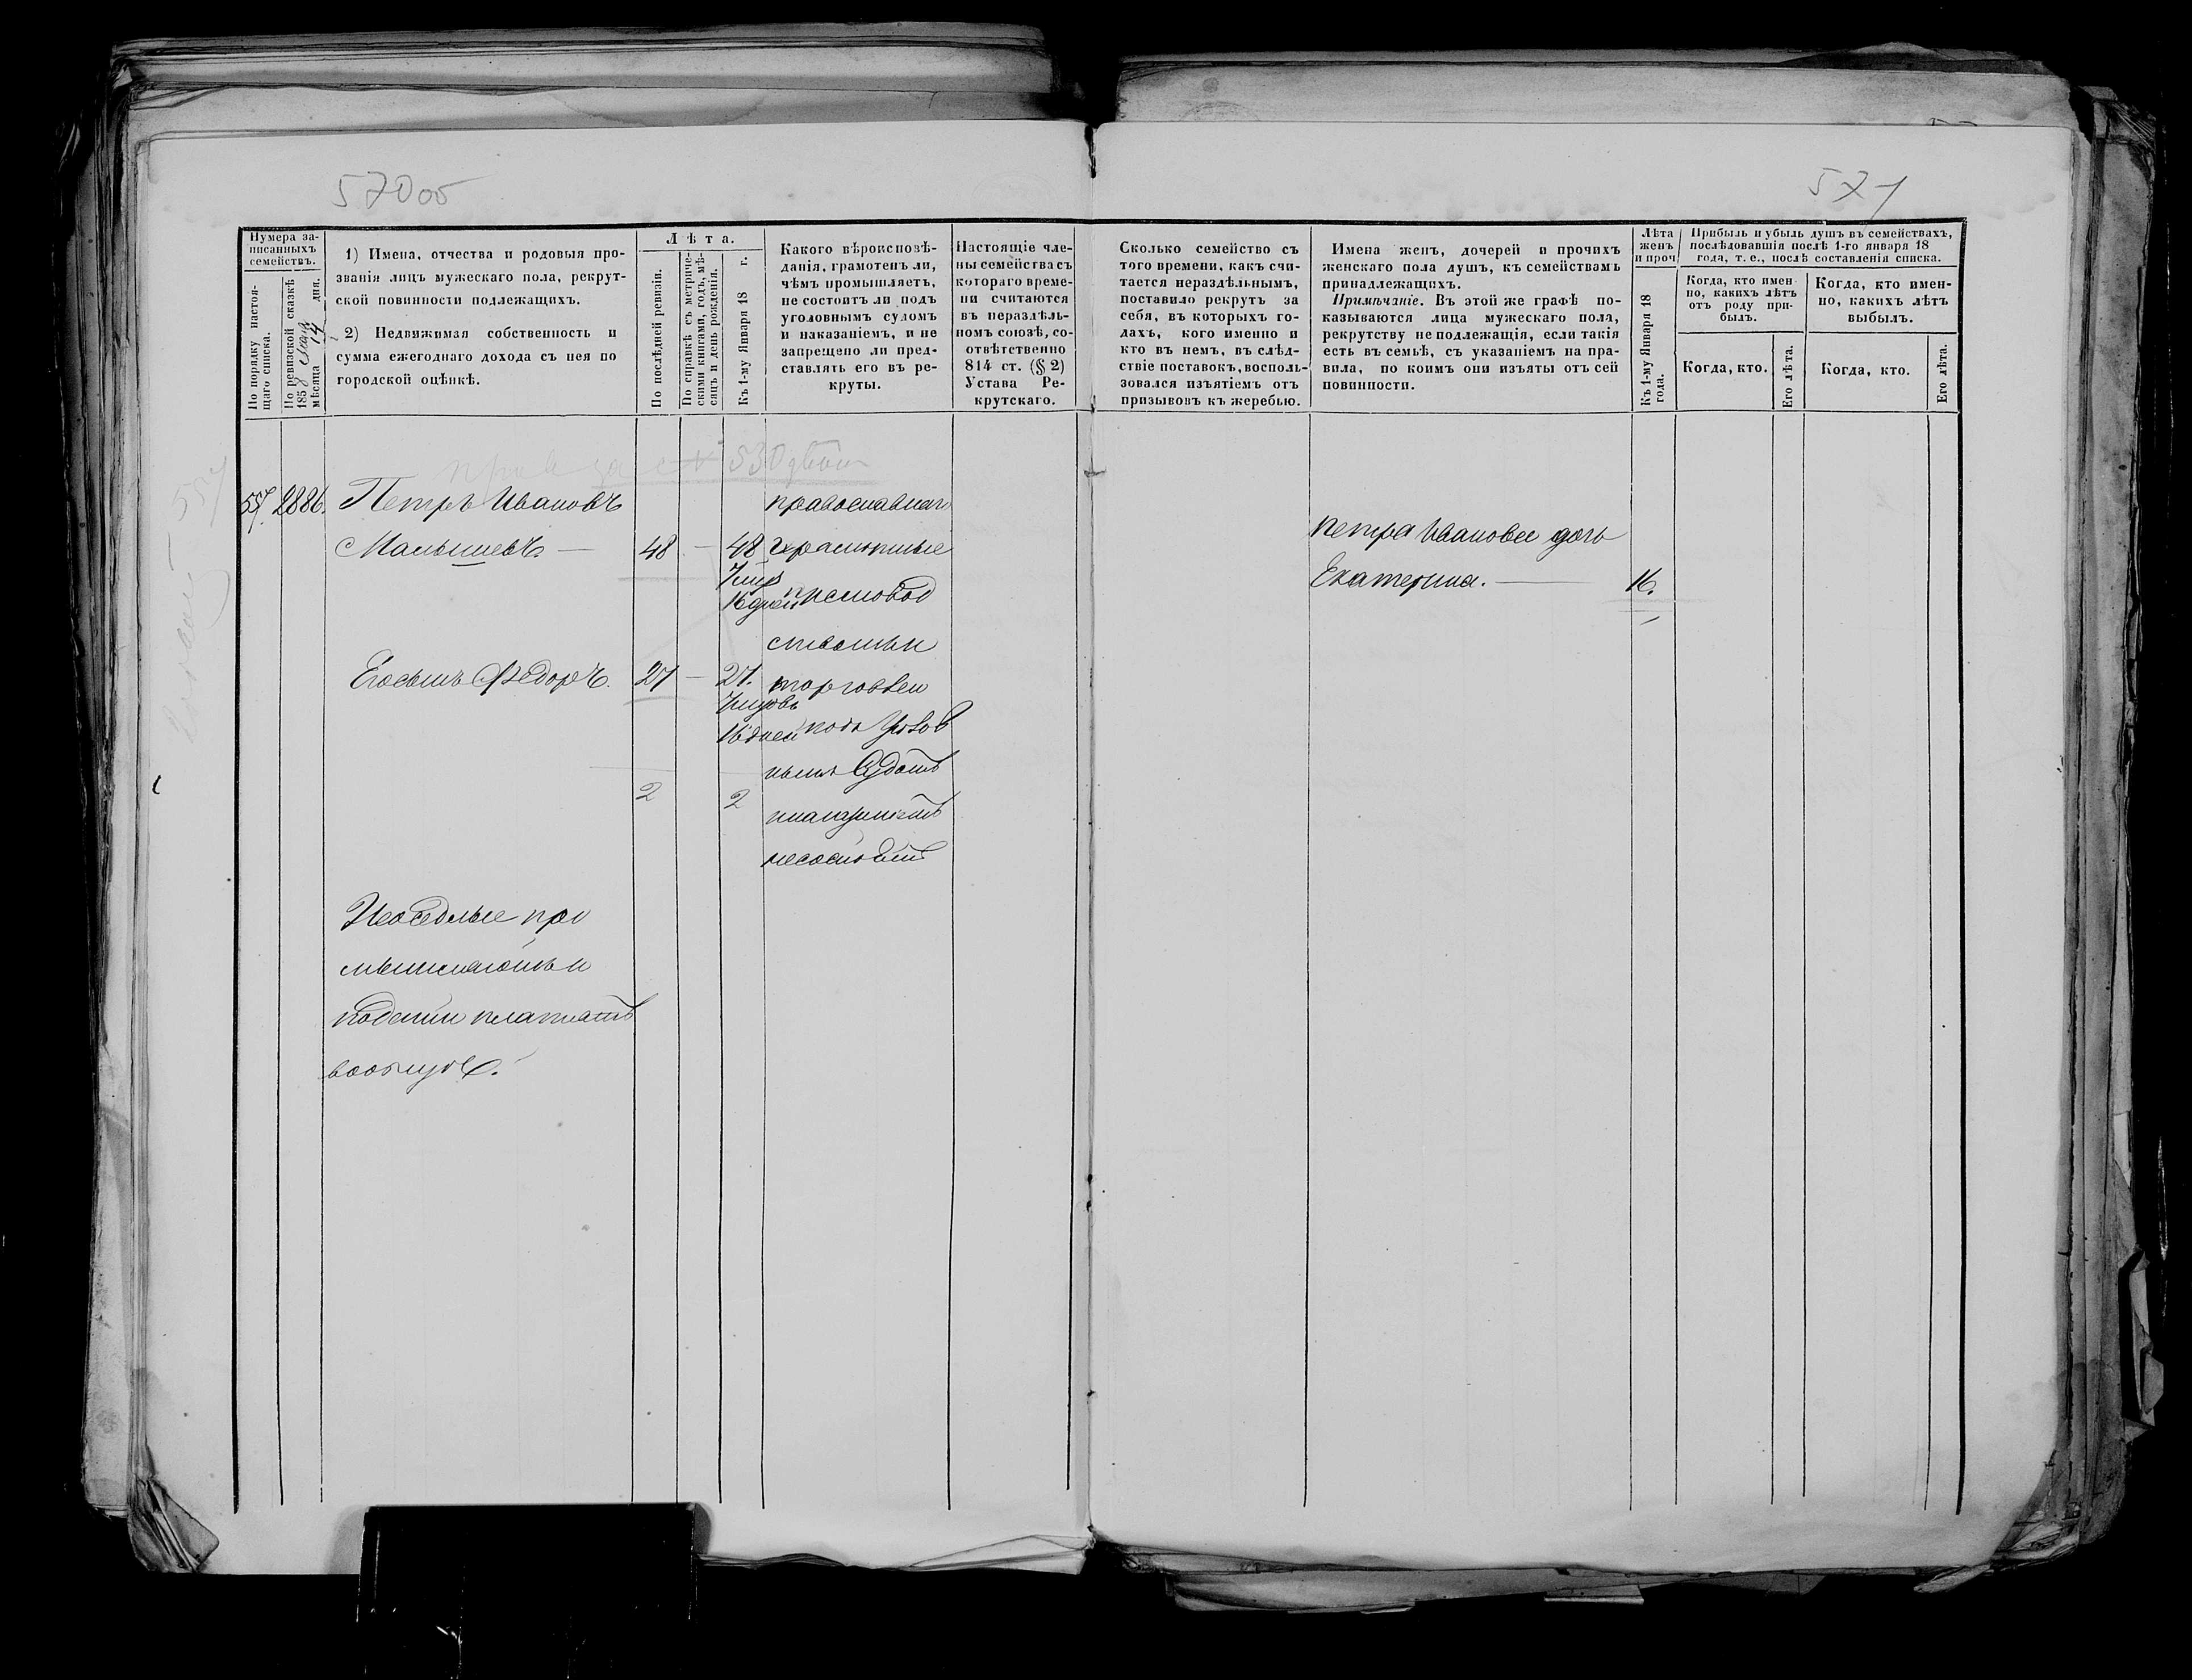 570об
571
Нумера за-
писанныхъ
семействъ.
По порядку настоя-
щаго списка.
По ревизской сказкѣ
1858 мая
мѣсяца 14 дня.
1) Имена, отчества и родовыя про-
званія лицъ мужескаго пола, рекрут-
ской повинности подлежащихъ.
2) Недвижимая собственность и
сумма ежегоднаго дохода съ нея по
городской оцѣнкѣ.
Лѣта.
По послѣдней ревизіи.
По справкѣ съ метриче-
скими книгами, годъ, мѣ-
сяцъ и день рожденія.
Къ 1-му Января 18 г.
Какого вѣроисповѣ-
данія, грамотенъ ли,
чѣмъ промышляетъ,
не состоитъ ли подъ
уголовнымъ судомъ
и наказаніемъ, и не
запрещено ли пред-
ставлять его въ ре-
круты.
Настоящіе чле-
ны семейства съ
котораго време-
ни считаются
въ нераздѣль-
номъ союзѣ, со-
отвѣтственно
814 ст. (§ 2)
Устава Ре-
крутскаго.
Сколько семейство съ
того времени, какъ счи-
тается нераздѣльнымъ,
поставило рекрутъ за
себя, въ которыхъ го-
дахъ, кого именно и
кто въ немъ, въ слѣд-
ствіе поставокъ, восполь-
зовался изъятіемъ отъ
призывовъ къ жеребью.
Имена женъ, дочерей и прочихъ
женскаго пола душъ, къ семействамъ
принадлежащихъ.
Примѣчаніе. Въ этой же графѣ по-
казываются лица мужескаго пола,
рекрутству не подлежащія, если такія
есть въ семьѣ, съ указаніемъ на пра-
вила, по коимъ они изъяты отъ сей
повинности.
Лѣта
женъ
и проч
Къ 1-му Января 18
года.
Прибыль и убыль душъ въ семействахъ,
послѣдовавшія послѣ 1-го января 18
года, т. е., послѣ составленія списка.
Когда, кто имен
но, какихъ лѣтъ
отъ роду при-
былъ.
Когда, кто имен-
но, какихъ лѣтъ
выбылъ.
Когда, кто.
Его лѣта.
Когда, кто.
Его лѣта.
530
557. 2886. Петръ Ивановъ
Малышевъ. — 48 — 48
16 дней
Его сынъ Ѳедоръ. 27 — 27.
16 дней
2 2
православнаго
торговлею
подъ уголов
нымъ судомъ
несостоитъ
Неоседлые про
мышленностью
подати платятъ
Петра Иванова дочь
Екатерина. — 16.